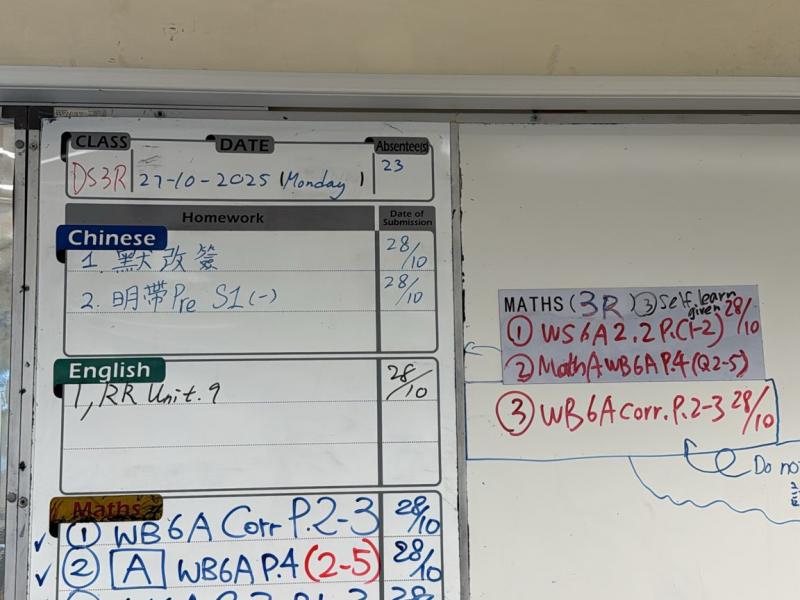 CLASS DATE Absentee(s)
DS3R 27-10-2025 (Monday) 23
Homework Date of Submission
Chinese
1. 默改簽 28/10
2. 明帶Pre S1(一) 28/10
English
1, RR Unit. 9 28/10
Maths
① WB6A Corr P.2-3 28/10
② A WB6A P.4 (2-5) 28/10
28
MATHS (3R) ③ Self learn given 28/10
① WS6A 2.2 P.(1-2)
② Math A WB6A P.4 (Q2-5)
③ WB6A Corr. P.2-3 28/10
Do no